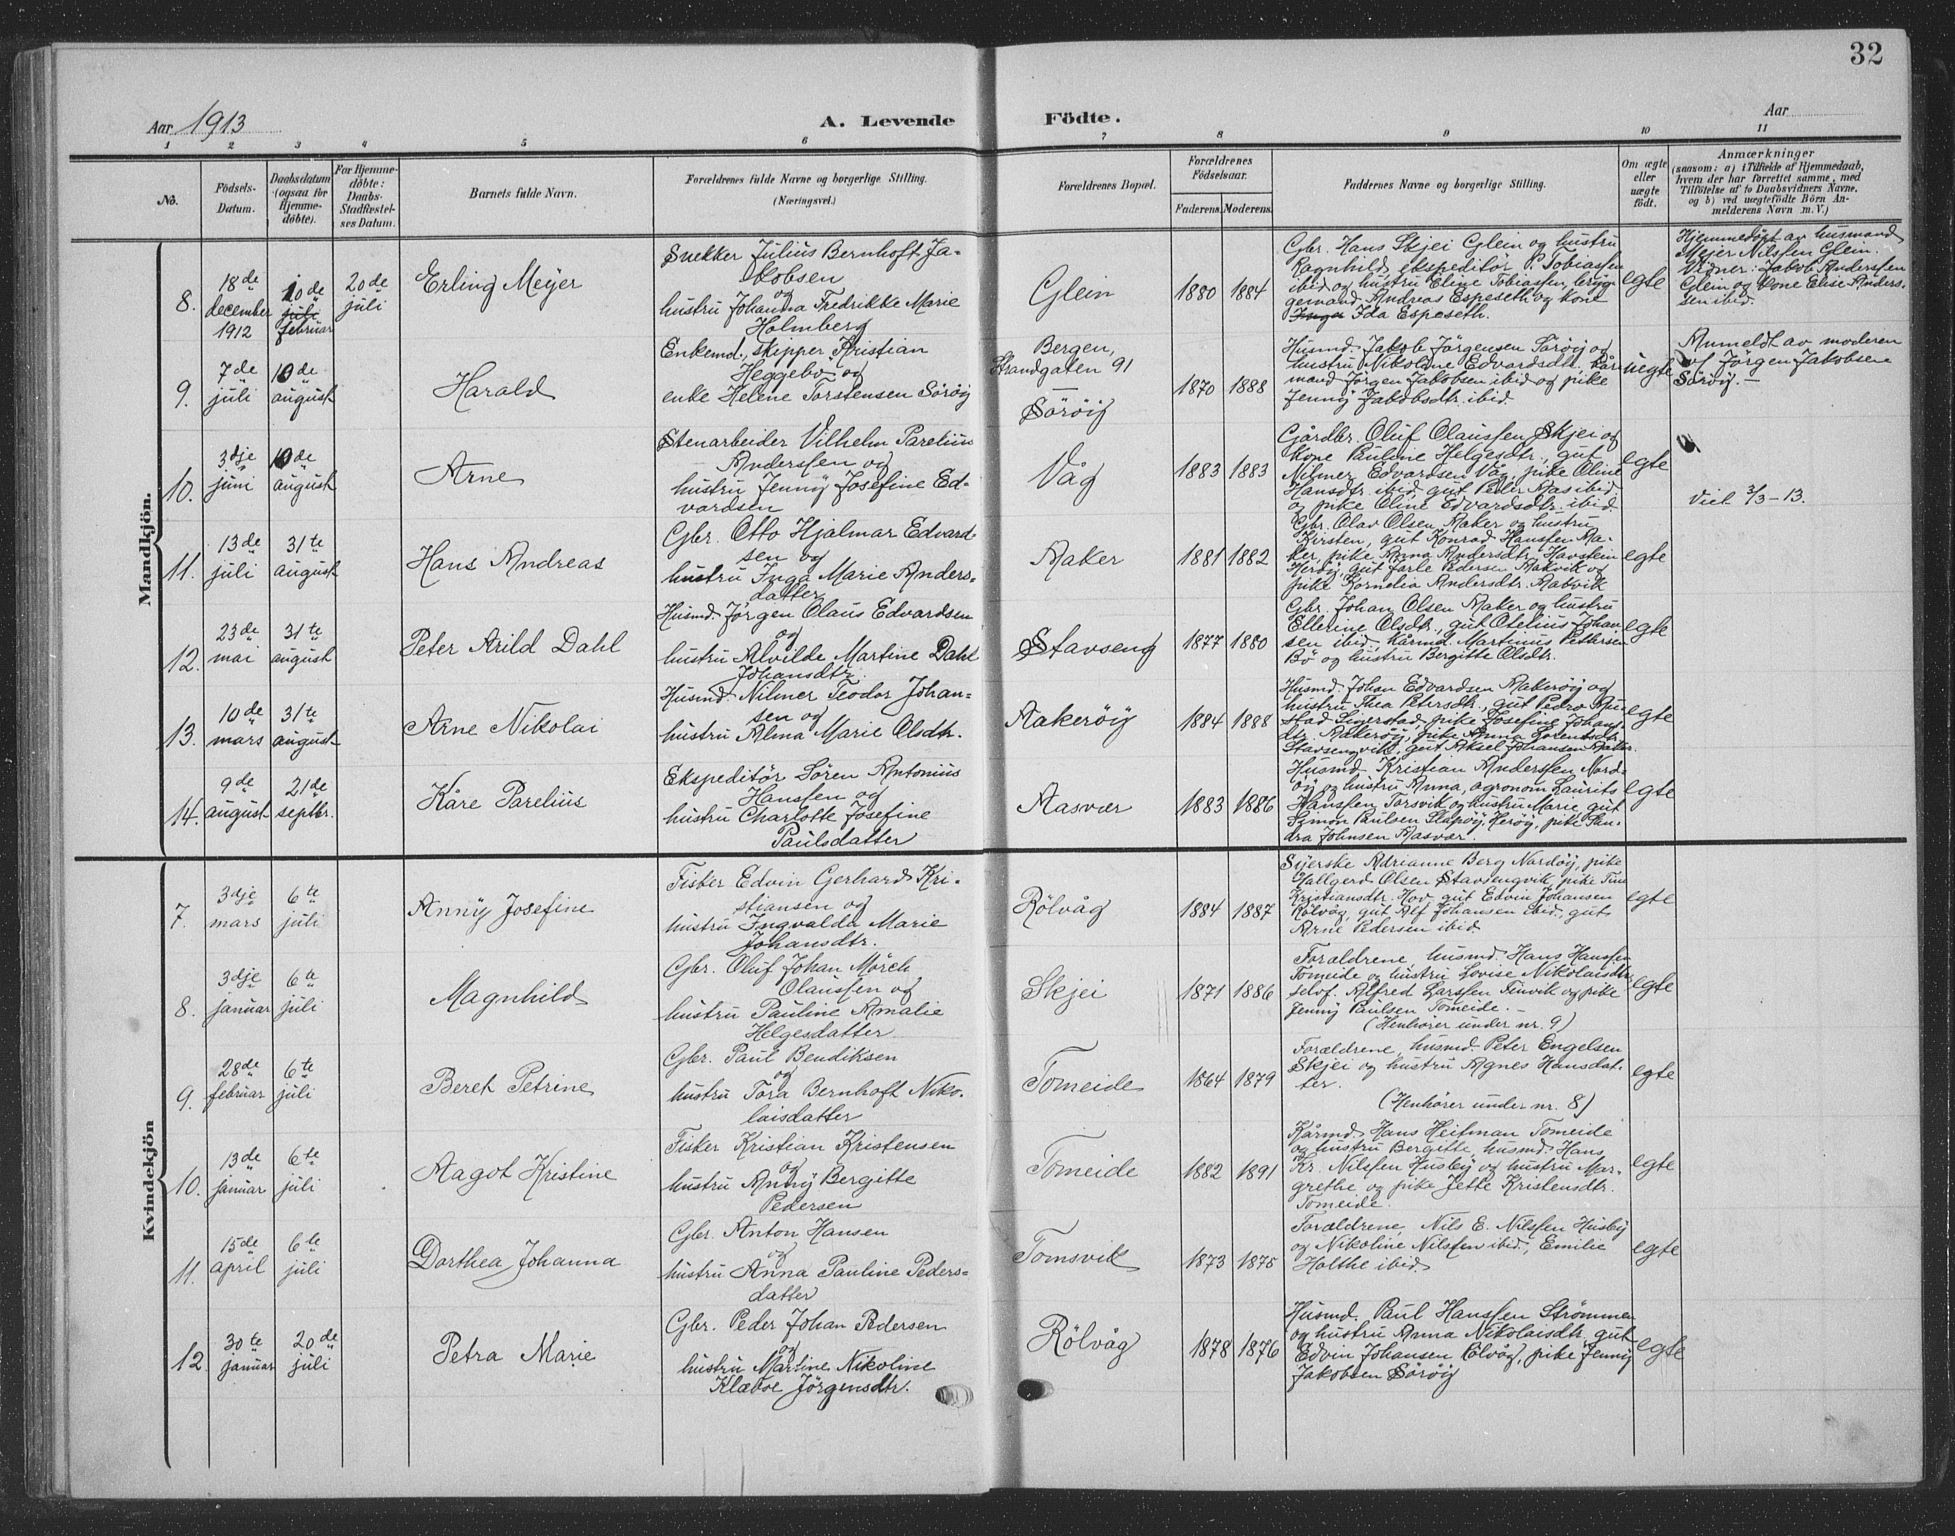 32
Aar 1913
A. Levende Födte.
Aar
1 2 3 4 5 6 7 8 9 10 11
No.
Födsels-
Datum.
Daabsdatum
(ogsaa for
Hjemme-
döbte).
For Hjemme-
döbte:
Daabs-
Stadfæstel-
ses Datum.
Barnets fulde Navn.
Forældrenes fulde Navne og borgerlige Stilling.
(Næringsvei.)
Forældrenes Bopæl.
Forældrenes
Födselsaar.
Faderens. Moderens.
Faddernes Navne og borgerlige Stilling.
Om ægte
eller
uægte
födt.
Anmærkninger
(saasom: a) i Tilfælde af Hjemmedaab,
hvem der har forrettet samme, med
Tilföielse af to Daabsvidners Navne,
og b) ved uægtefödte Börn An-
melderens Navn m. V.)
Mandkjön.
8.
18de
december
1912
10de
juli
februar
20de
juli
Erling Meyer
Snekker Julius Bernhoft Ja-
kobsen
og
hustru Johanna Fredrikke Marie
Holmberg
Glein
1880 1884
Gbr. Hans Skjei Glein og hustru
Ragnhild, ekspeditör P. Tobiassen
ibid og hustru Eline Tobiassen, brygg-
gemand Andreas Espeseth og kone
Inga Ida Espeseth.
egte
Hjemmedøpt av husmand
Mejer Nilssen Glein.
Vidner: Jakob Anderssen
Glein og kone Elise Anders-
sen ibid.
9.
7de
juli
10de
august
Harald
Enkemd., skipper Kristian
Heggebo og
enke Helene Torstensen Sörøy
Bergen,
Strandgaten 91
—
Sörøy
1870 1888
Husmd. Jakob Jörgensen Sörøy og
hustru Nikoline Edvardsdtr. kår-
mand Jörgen Jakobsen ibid og pike
Jenny Jakobsdtr. ibid.
uegte
Anmeldt av moderen
v. Jörgen Jakobsen
Sörøy. —
10.
3dje
juni
10de
august
Arne
Stenarbeider Vilhelm Parelius
Anderssen og
hustru Jenny Josefine Ed-
vardsen
Våg
1883 1883
Gårdbr. Oluf Olaussen Skjei og
kone Pauline Helgesdtr., gut
Nilmer Edvardsen Våg, pike Oline
Hansdtr. ibid, gut Peder Aas ibid
og pike Oline Edvardsdtr. ibid.
egte
Viet 3/3-13.
11.
13de
juli
31te
august
Hans Andreas
Gbr. Otto Hjalmar Edvard-
sen og
hustru Inga Marie Anders-
datter
Aaker
1881 1882
Gbr. Olav Olsen Aaker og hustru
Kirsten, gut Konrad Hanssen Aa-
ker, pike Anna Andersdtr. Havstein
Herøy, gut Jarle Pedersen Aakvik og
pike Kornelia Andersdtr. Aakvik
egte
12.
23de
mai
31te
august
Peter Arild Dahl
Husmd. Jørgen Olaus Edvardsen
og
hustru Alvilde Martine Dahl
Johansdtr.
Stavseng
1877 1880
Gbr. Johan Olsen Aaker og hustru
Ellerine Olsdtr., gut Otelius Johan-
sen ibid, kårmd. Martinus Pettersen
Bö og hustru Bergitte Olsdtr.
egte
13.
10de
mars
31te
august
Arne Nikolai
Husmd. Nilmer Teodor Johan-
sen og
hustru Alma Marie Olsdtr.
Aakerøy
1884 1888
Husmd. Johan Edvardsen Aakerøy og
hustru Thea Petersdtr., gut Pedro Rui-
stad Singerstad, pike Josefine Johans-
dtr. Aakerøy, pike Anna Lorentsdtr.
Stavsengvik, gut Aksel Johansen Aaker.
egte
14.
9de
august
21de
septbr.
Kåre Parelius
Ekspeditör Sören Antonius
Hanssen og
hustru Charlotte Josefine
Paulsdatter
Aasvær
1883 1886
Husmd. Kristian Anderssen Nord-
øy og hustru Anna, agronom Laurits
Hanssen Torsvik og hustru Marie, gut
Simon Paulsen Slapøy, Herøy, pike San-
dra Johnsen Aasvær.
egte
Kvindekjön
7.
3dje
mars
6te
juli
Anny Josefine
Fisker Edvin Gerhard Kri-
stiansen og
hustru Ingvalda Marie
Johansdtr.
Rölvåg
1884 1887
Syerske Adrianne Berg Nordøy, pike
Hallgerd Olsen Stavsengvik, pike Tine
Kristiansdtr. Hov, gut Edvin Johansen
Rölvåg, gut Alf Johansen ibid, gut
Arne Pedersen ibid.
egte
8.
3dje
januar
6te
juli
Magnhild
Gbr. Oluf Johan Mörch
Olaussen og
hustru Pauline Amalie
Helgesdatter
Skjei
1871 1886
Forældrene, husmd. Hans Hanssen
Tomeide og hustru Lovise Nikolaisdtr.
selvf. Alfred Larssen Finvik og pike
Jenny Paulsen Tomeide. —
(Henhører under nr. 9)
egte
9.
28de
februar
6te
juli
Beret Petrine
Gbr. Paul Bendiksen
og
hustru Tora Bernhoft Niko-
laisdatter
Tomeide
1864 1879
Forældrene, husmd. Peter Engelsen
Skjei og hustru Agnes Hansdat-
ter.
(Henhører under nr. 8)
egte
10.
13de
januar
6te
juli
Aagot Kristine
Fisker Kristian Kristensen
og
hustru Anny Bergitte
Pedersen
Tomeide
1882 1891
Kårmd. Hans Heitman Tomeide
og hustru Bergitte, husmd. Hans
Kr. Nilssen Husby og hustru Mar-
grethe og pike Jette Kristensdtr.
Tomeide.
egte
11.
15de
april
6te
juli
Dorthea Johanna
Gbr. Anton Hansen
og
hustru Anna Pauline Peders-
datter
Tomsvik
1873 1875
Forældrene, Nils E. Nilssen Husby
og Nikoline Nilssen ibid., Emilie
Holthe ibid.
egte
12.
30te
januar
20de
juli
Petra Marie
Gbr. Peder Johan Pedersen
og
hustru Martine Nikoline
Klæboe Jörgensdtr.
Rölvåg
1878 1876
Husmd. Paul Hanssen Strømmen
og hustru Anna Nikolaisdtr. gut
Edvin Johansen Rölvåg, pike Jenny
Jakobsen Sörøy
egte